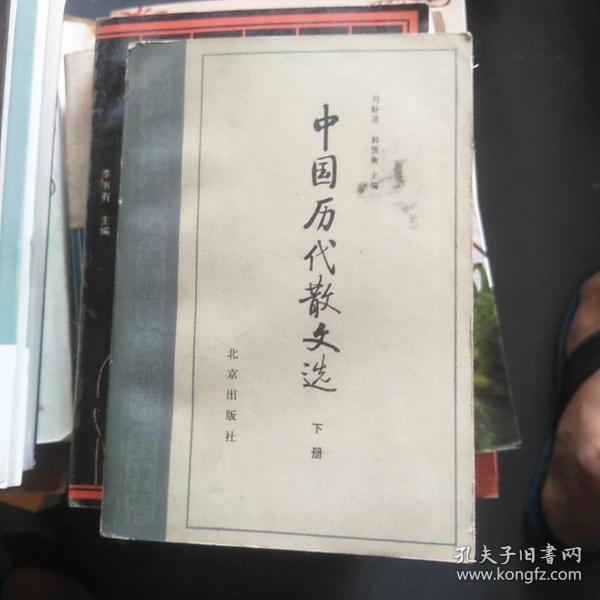 刘盼遂 郭预衡 主编
中国历代散文选
下册
北京出版社
李书有 主编
孔夫子旧书网
www.kongfz.com